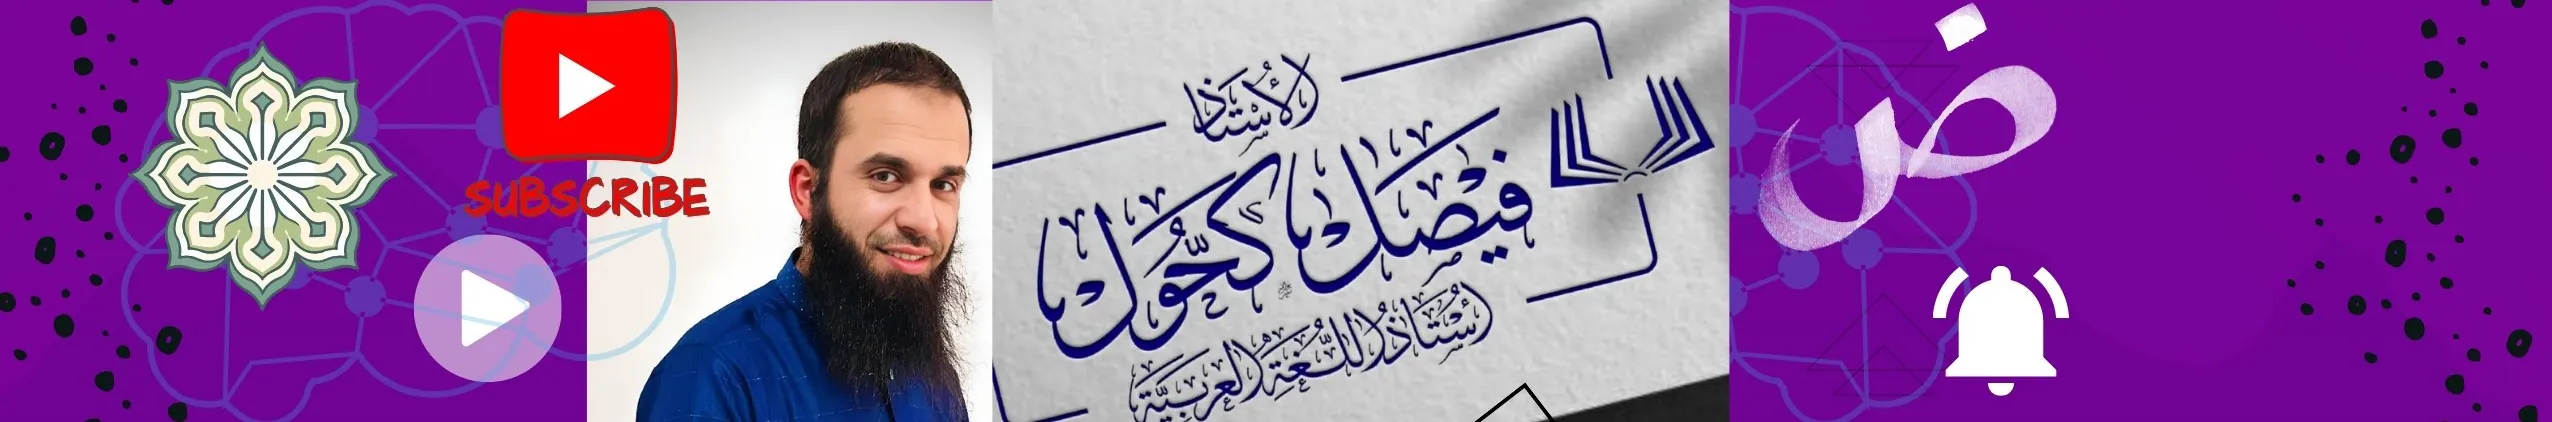 SUBSCRIBE
الأُسْتَاذ
فَيْصَل كَحُّول
أُسْتَاذُ اللُّغَةِ العَرَبِيَّة
ض